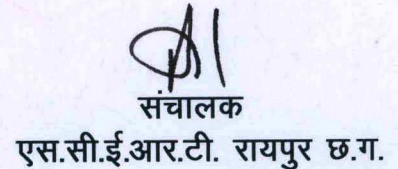 संचालक
एस.सी.ई.आर.टी. रायपुर छ.ग.